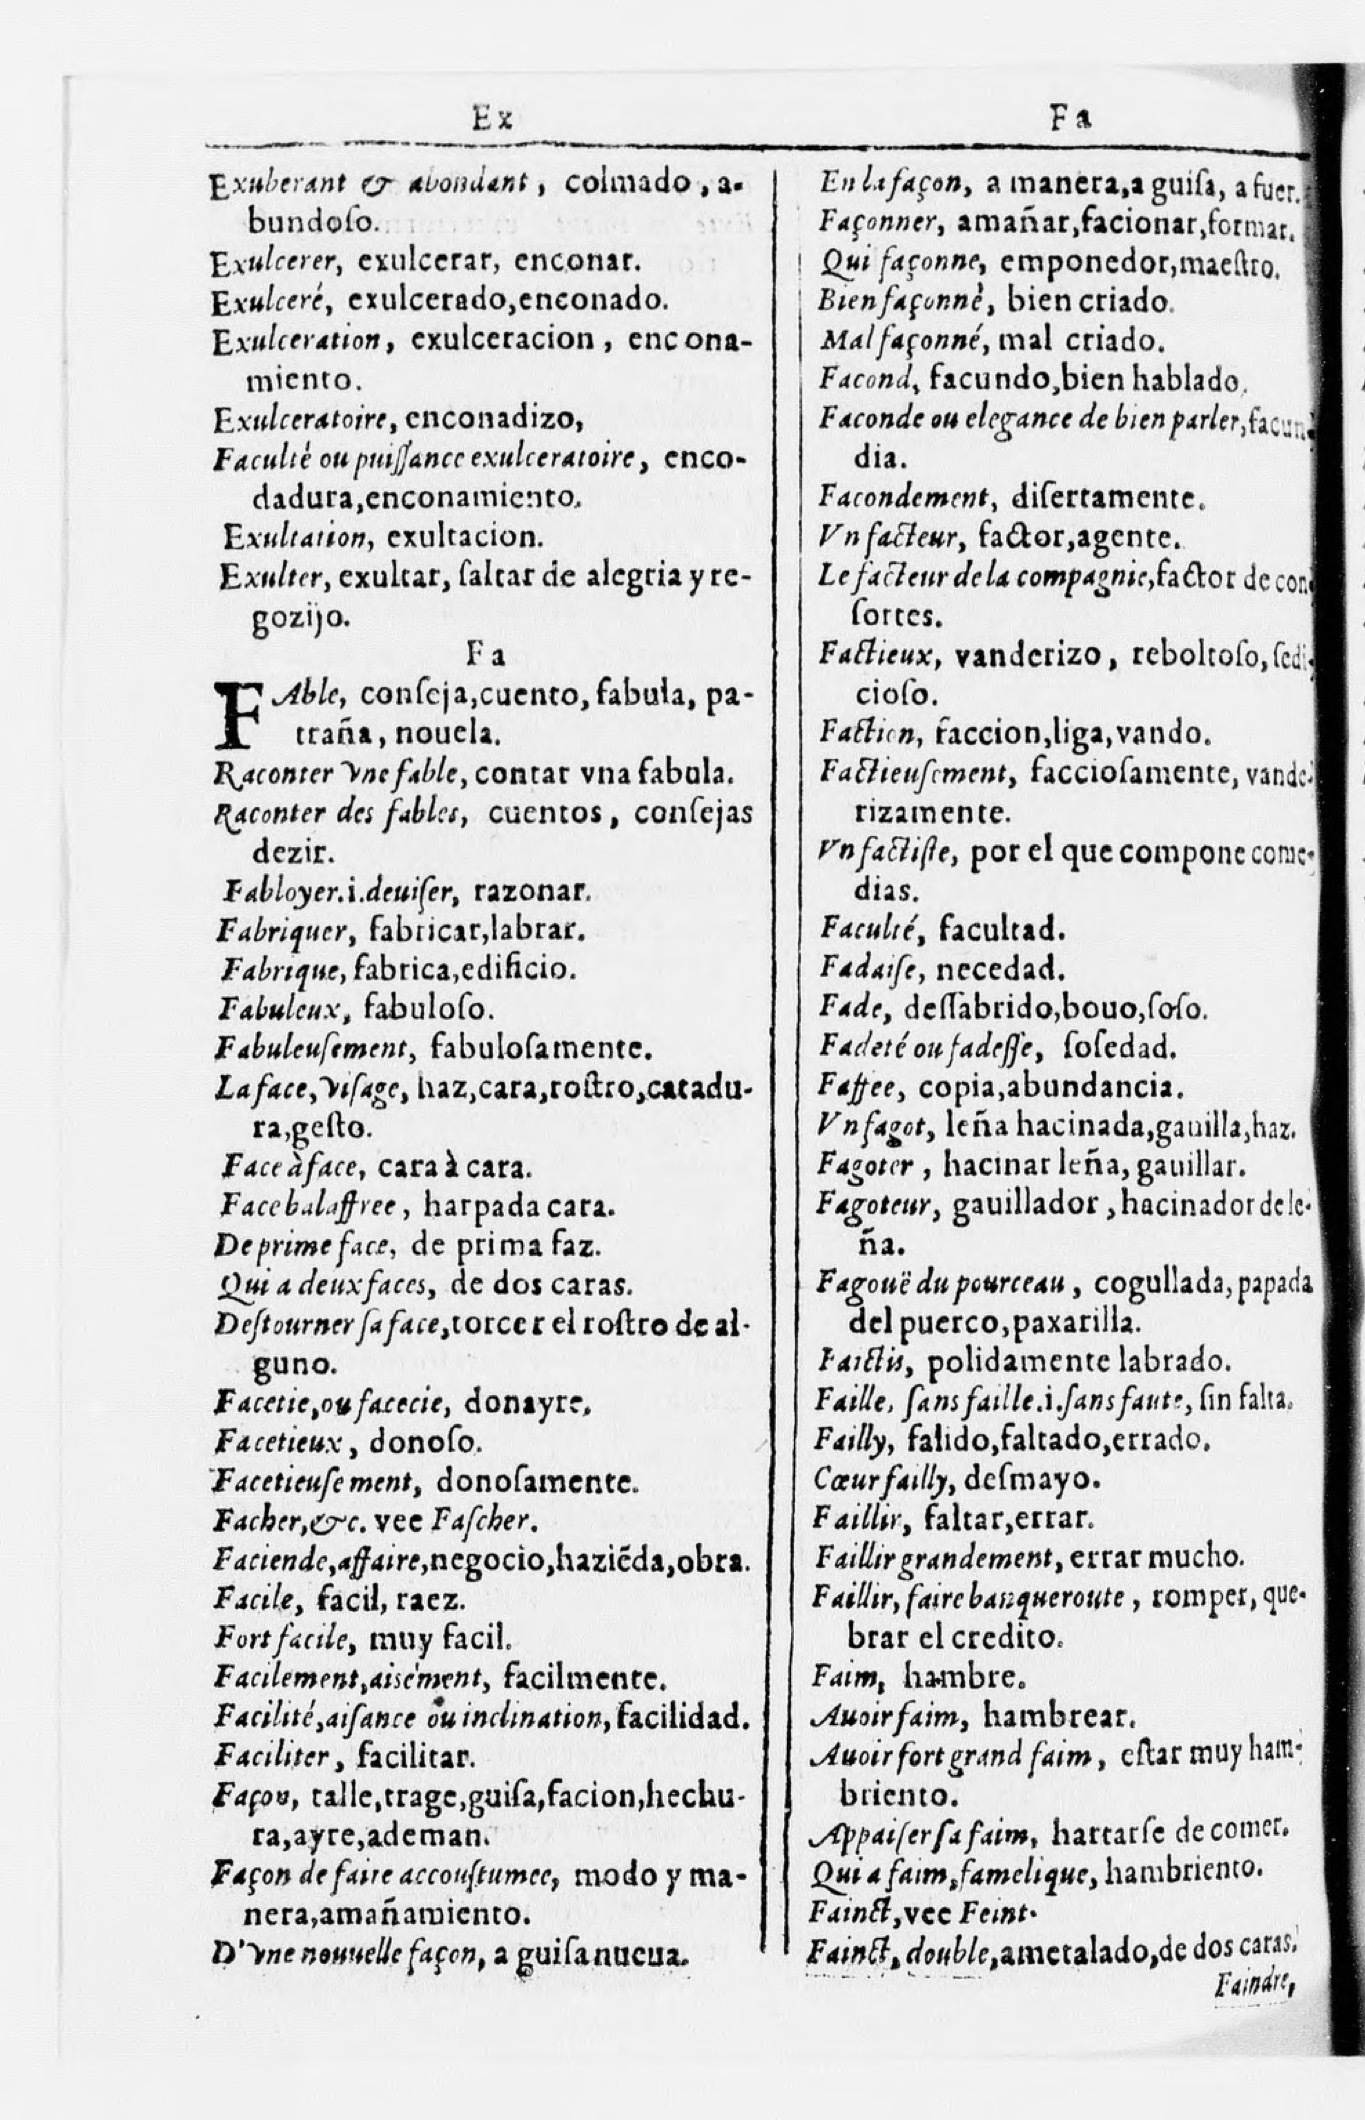 Ex
Exuberant & abondant, colmado, a-
bundoſo.
Exulcerer, exulcerar, enconar.
Exulceré, exulcerado,enconado.
Exulceration, exulceracion, encona-
miento.
Exulceratoire, enconadizo,
Faculté ou puiſſance exulceratoire, enco-
dadura,enconamiento.
Exultation, exultacion.
Exulter, exultar, ſaltar de alegria y re-
gozijo.
Fa
FAble, conſeja,cuento, fabula, pa-
traña, nouela.
Raconter vne fable, contar vna fabula.
Raconter des fables, cuentos, conſejas
dezir.
Fabloyer.i.deuiſer, razonar.
Fabriquer, fabricar,labrar.
Fabrique, fabrica,edificio.
Fabuleux, fabuloſo.
Fabuleuſement, fabuloſamente.
La face, viſage, haz,cara,roſtro,catadu-
ra,geſto.
Face à face, cara à cara.
Face balaffree, harpada cara.
De prime face, de prima faz.
Qui a deux faces, de dos caras.
Deſtourner ſa face,torcer el roſtro de al-
guno.
Facetie,ou facecie, donayre,
Facetieux, donoſo.
Facetieuſement, donoſamente.
Facher,&c. vee Faſcher.
Faciende,affaire,negocio,haziẽda,obra.
Facile, facil, raez.
Fort facile, muy facil.
Facilement,aisément, facilmente.
Facilité,aiſance ou inclination, facilidad.
Faciliter, facilitar.
Façon, talle,trage,guiſa,facion,hechu-
ra,ayre,ademan.
Façon de faire accouſtumee, modo y ma-
nera,amañamiento.
D'vne nouuelle façon, a guiſa nueua.
Fa
En la façon, a manera,a guiſa, a fuer.
Façonner, amañar,facionar,formar.
Qui façonne, emponedor,maeſtro.
Bien façonné, bien criado.
Mal façonné, mal criado.
Facond, facundo,bien hablado.
Faconde ou elegance de bien parler,facun-
dia.
Facondement, diſertamente.
Vn facteur, factor,agente.
Le facteur de la compagnie,factor de con-
ſortes.
Factieux, vanderizo, reboltoſo, ſedi-
cioſo.
Faction, faccion,liga,vando.
Factieuſement, faccioſamente, vande-
rizamente.
Vn factiſte, por el que compone come-
dias.
Faculté, facultad.
Fadaiſe, necedad.
Fade, deſſabrido,bouo,ſoſo.
Fadeté ou fadeſſe, ſoſedad.
Faffee, copia,abundancia.
Vn fagot, leña hacinada,gauilla,haz.
Fagoter, hacinar leña, gauillar.
Fagoteur, gauillador, hacinador de le-
ña.
Fagouë du pourceau, cogullada, papada
del puerco,paxarilla.
Faictis, polidamente labrado.
Faille, ſans faille.i.ſans faute, ſin falta.
Failly, falido,faltado,errado.
Cœur failly, deſmayo.
Faillir, faltar,errar.
Faillir grandement, errar mucho.
Faillir, faire banqueroute, romper, que-
brar el credito.
Faim, hambre.
Auoir faim, hambrear.
Auoir fort grand faim, eſtar muy ham-
briento.
Appaiſer ſa faim, hartarſe de comer.
Qui a faim,famelique, hambriento.
Fainct,vee Feint.
Fainct, double,ametalado,de dos caras.
Faindre,